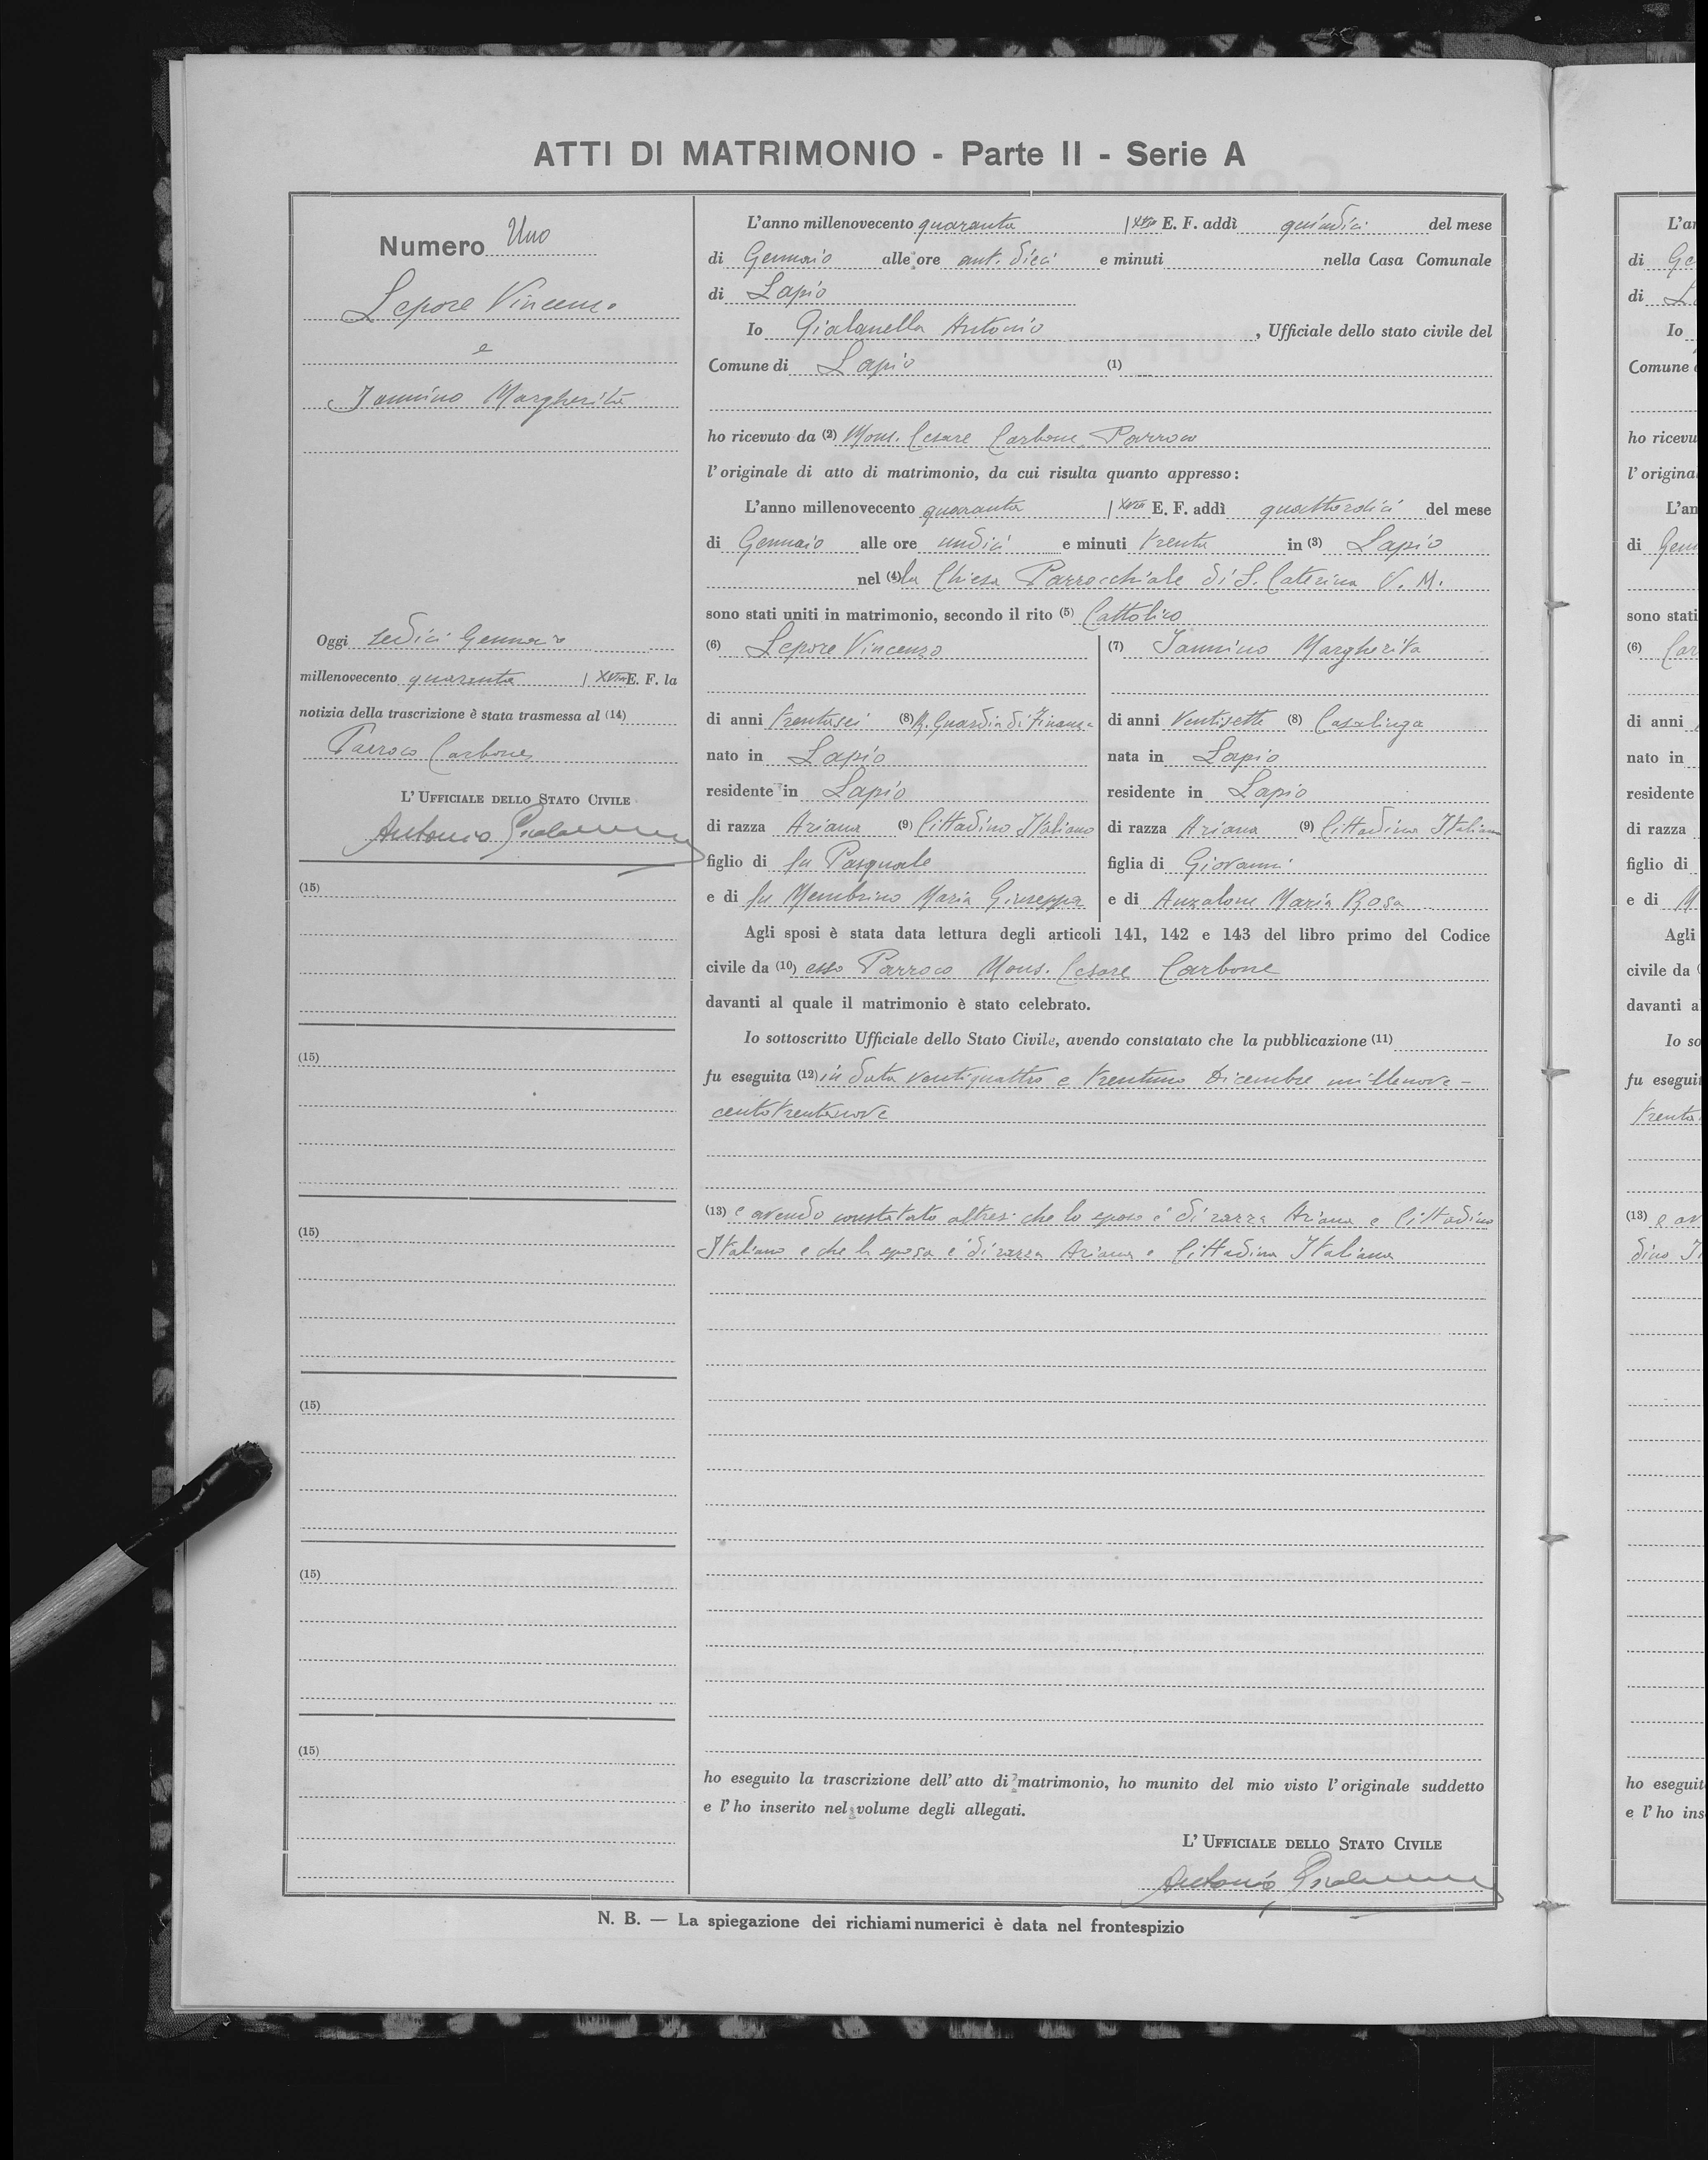 ATTI DI MATRIMONIO - Parte II - Serie A
Numero Uno
Lepore Vincenzo
e
Iannino Margherita
Oggi sedici Gennaio
millenovecento quaranta / XVIII E. F. la
notizia della trascrizione è stata trasmessa al (14)
Parroco Carbone
L' UFFICIALE DELLO STATO CIVILE
Antonio
(15)
(15)
(15)
(15)
(15)
(15)
L'anno millenovecento quaranta / XVIII E. F. addì quindici del mese
di Gennaio alle ore ant. dieci e minuti nella Casa Comunale
di Lapio
Io Gialanella Antonio , Ufficiale dello stato civile del
Comune di Lapio (1)
ho ricevuto da (2) Mons. Cesare Carbone Parroco
l'originale di atto di matrimonio, da cui risulta quanto appresso:
L'anno millenovecento quaranta / XVIII E. F. addì quattordici del mese
di Gennaio alle ore undici e minuti trenta in (3) Lapio
nel (4) la Chiesa Parrocchiale di S. Caterina V. M.
sono stati uniti in matrimonio, secondo il rito (5) Cattolico
(6) Lepore Vincenzo
di anni trentasei (8) R. Guardia di Finanza
nato in Lapio
residente in Lapio
di razza Ariana (9) Cittadino Italiano
figlio di fu Pasquale
e di fu Membrino Maria Giuseppa
(7) Iannino Margherita
di anni Ventisette (8) Casalinga
nata in Lapio
residente in Lapio
di razza Ariana (9) Cittadina Italiana
figlia di Giovanni
e di Anzalone Maria Rosa
Agli sposi è stata data lettura degli articoli 141, 142 e 143 del libro primo del Codice
civile da (10) esso Parroco Mons. Cesare Carbone
davanti al quale il matrimonio è stato celebrato.
Io sottoscritto Ufficiale dello Stato Civile, avendo constatato che la pubblicazione (11)
fu eseguita (12) in data ventiquattro e trentuno Dicembre millenove-
centotrentanove
(13) e avendo constatato altresì che lo sposo è di razza Ariana e Cittadino
Italiano e che la sposa è di razza Ariana e Cittadina Italiana
ho eseguito la trascrizione dell'atto di matrimonio, ho munito del mio visto l'originale suddetto
e l'ho inserito nel volume degli allegati.
L' UFFICIALE DELLO STATO CIVILE
Antonio
N. B. — La spiegazione dei richiami numerici è data nel frontespizio
di
di
Io
Comune
ho ricevu
l'origina
di
sono stati
(6)
di anni
nato in
residente
di razza
figlio di
e di
Agli
civile da
davanti a
Io so
fu esegui
(13)
ho eseguit
e l'ho ins